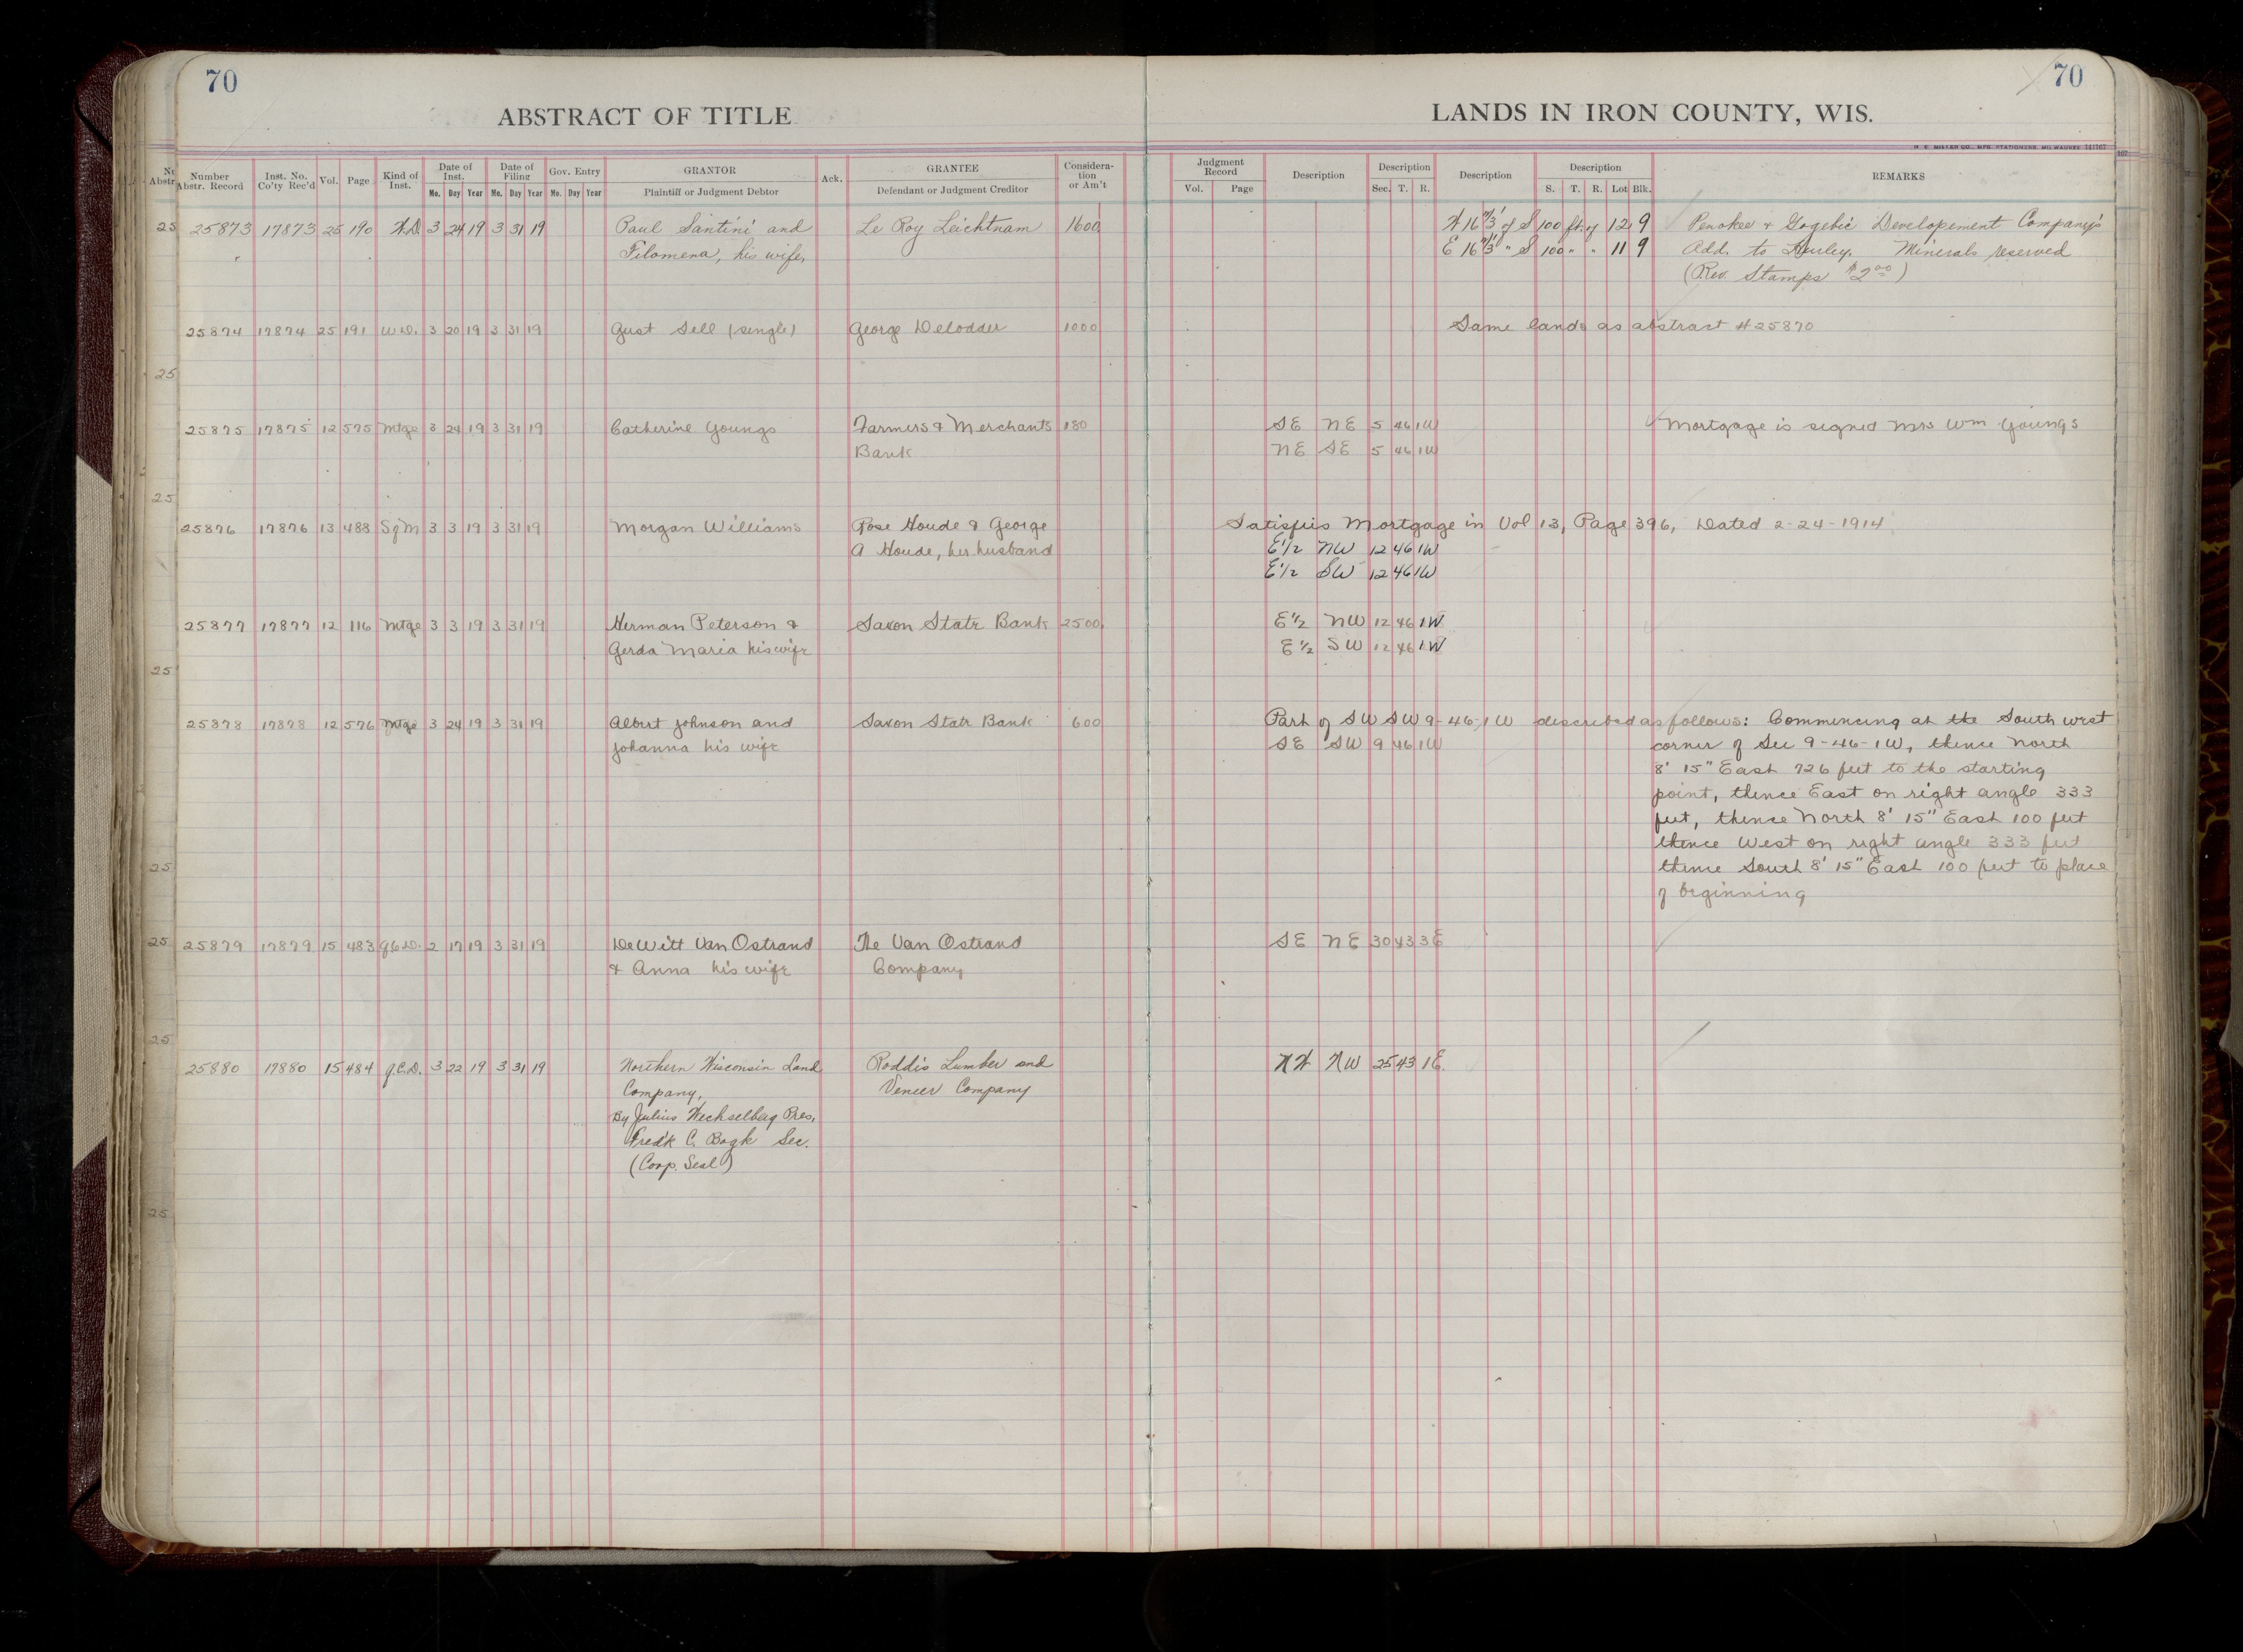 70
70
ABSTRACT OF TITLE
LANDS IN IRON COUNTY, WIS.
H. F. MILLER CO., MFG. STATIONERS, MILWAUKEE 141767
Number Abstr. Record | Inst. No. Co'ty Rec'd | Vol. | Page | Kind of Inst. | Date of Inst. Mo. Day Year | Date of Filing Mo. Day Year | Gov. Entry Mo. Day Year | GRANTOR Plaintiff or Judgment Debtor | Ack. | GRANTEE Defendant or Judgment Creditor | Considera-tion or Am't | Judgment Record Vol. Page | Description | Description Sec. T. R. | Description | Description S. T. R. Lot Blk. | REMARKS
25873 17873 25 190 W.D. 3 24 19 3 31 19 Paul Santini and Le Roy Leichtnam 1600 W 16 2/3' of S 100 ft. of 12 9 Penokee & Gogebic Developement Company's
Filomena, his wife, E 16 2/3' " S 100 " " 11 9 Add. to Hurley. Minerals reserved
(Rev. Stamps $2.00)
25874 17874 25 191 W.D. 3 20 19 3 31 19 Gust Sell (single) George Delodder 1000 Same lands as abstract #25870
25875 17875 12 575 Mtge 3 24 19 3 31 19 Catherine Youngs Farmers & Merchants 180 SE NE 5 46 1W Mortgage is signed Mrs Wm Youngs
Bank NE SE 5 46 1W
25876 17876 13 488 S of M 3 3 19 3 31 19 Morgan Williams Rose Houde & George Satisfies Mortgage in Vol 13, Page 396, Dated 2-24-1914
A Houde, her husband E1/2 NW 12 46 1W
E1/2 SW 12 46 1W
25877 17877 12 116 Mtge 3 3 19 3 31 19 Herman Peterson & Saxon State Bank 2500 E1/2 NW 12 46 1W
Gerda Maria his wife E1/2 SW 12 46 1W
25878 17878 12 576 Mtge 3 24 19 3 31 19 Albert Johnson and Saxon State Bank 600 Part of SW SW 9-46-1W described as follows: Commencing at the South west
Johanna his wife SE SW 9 46 1W corner of Sec 9-46-1W, thence North
8' 15" East 726 feet to the starting
point, thence East on right angle 333
feet, thence North 8' 15" East 100 feet
thence West on right angle 333 feet
thence South 8' 15" East 100 feet to place
of beginning
25879 17879 15 483 Q.C.D. 2 17 19 3 31 19 DeWitt Van Ostrand The Van Ostrand SE NE 30 43 3E
& Anna his wife Company
25880 17880 15 484 Q.C.D. 3 22 19 3 31 19 Northern Wisconsin Land Roddis Lumber and NW NW 25 43 1E.
Company, Veneer Company
By Julius Wechselberg Pres.
Fred'k C. Bogk Sec.
(Corp. Seal)